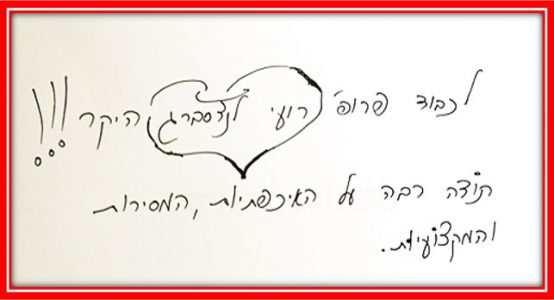 לכבוד פרופ' רועי לנדסברג היקר !!!
תודה רבה על האיכפתיות, המסירות
והמקצועיות.